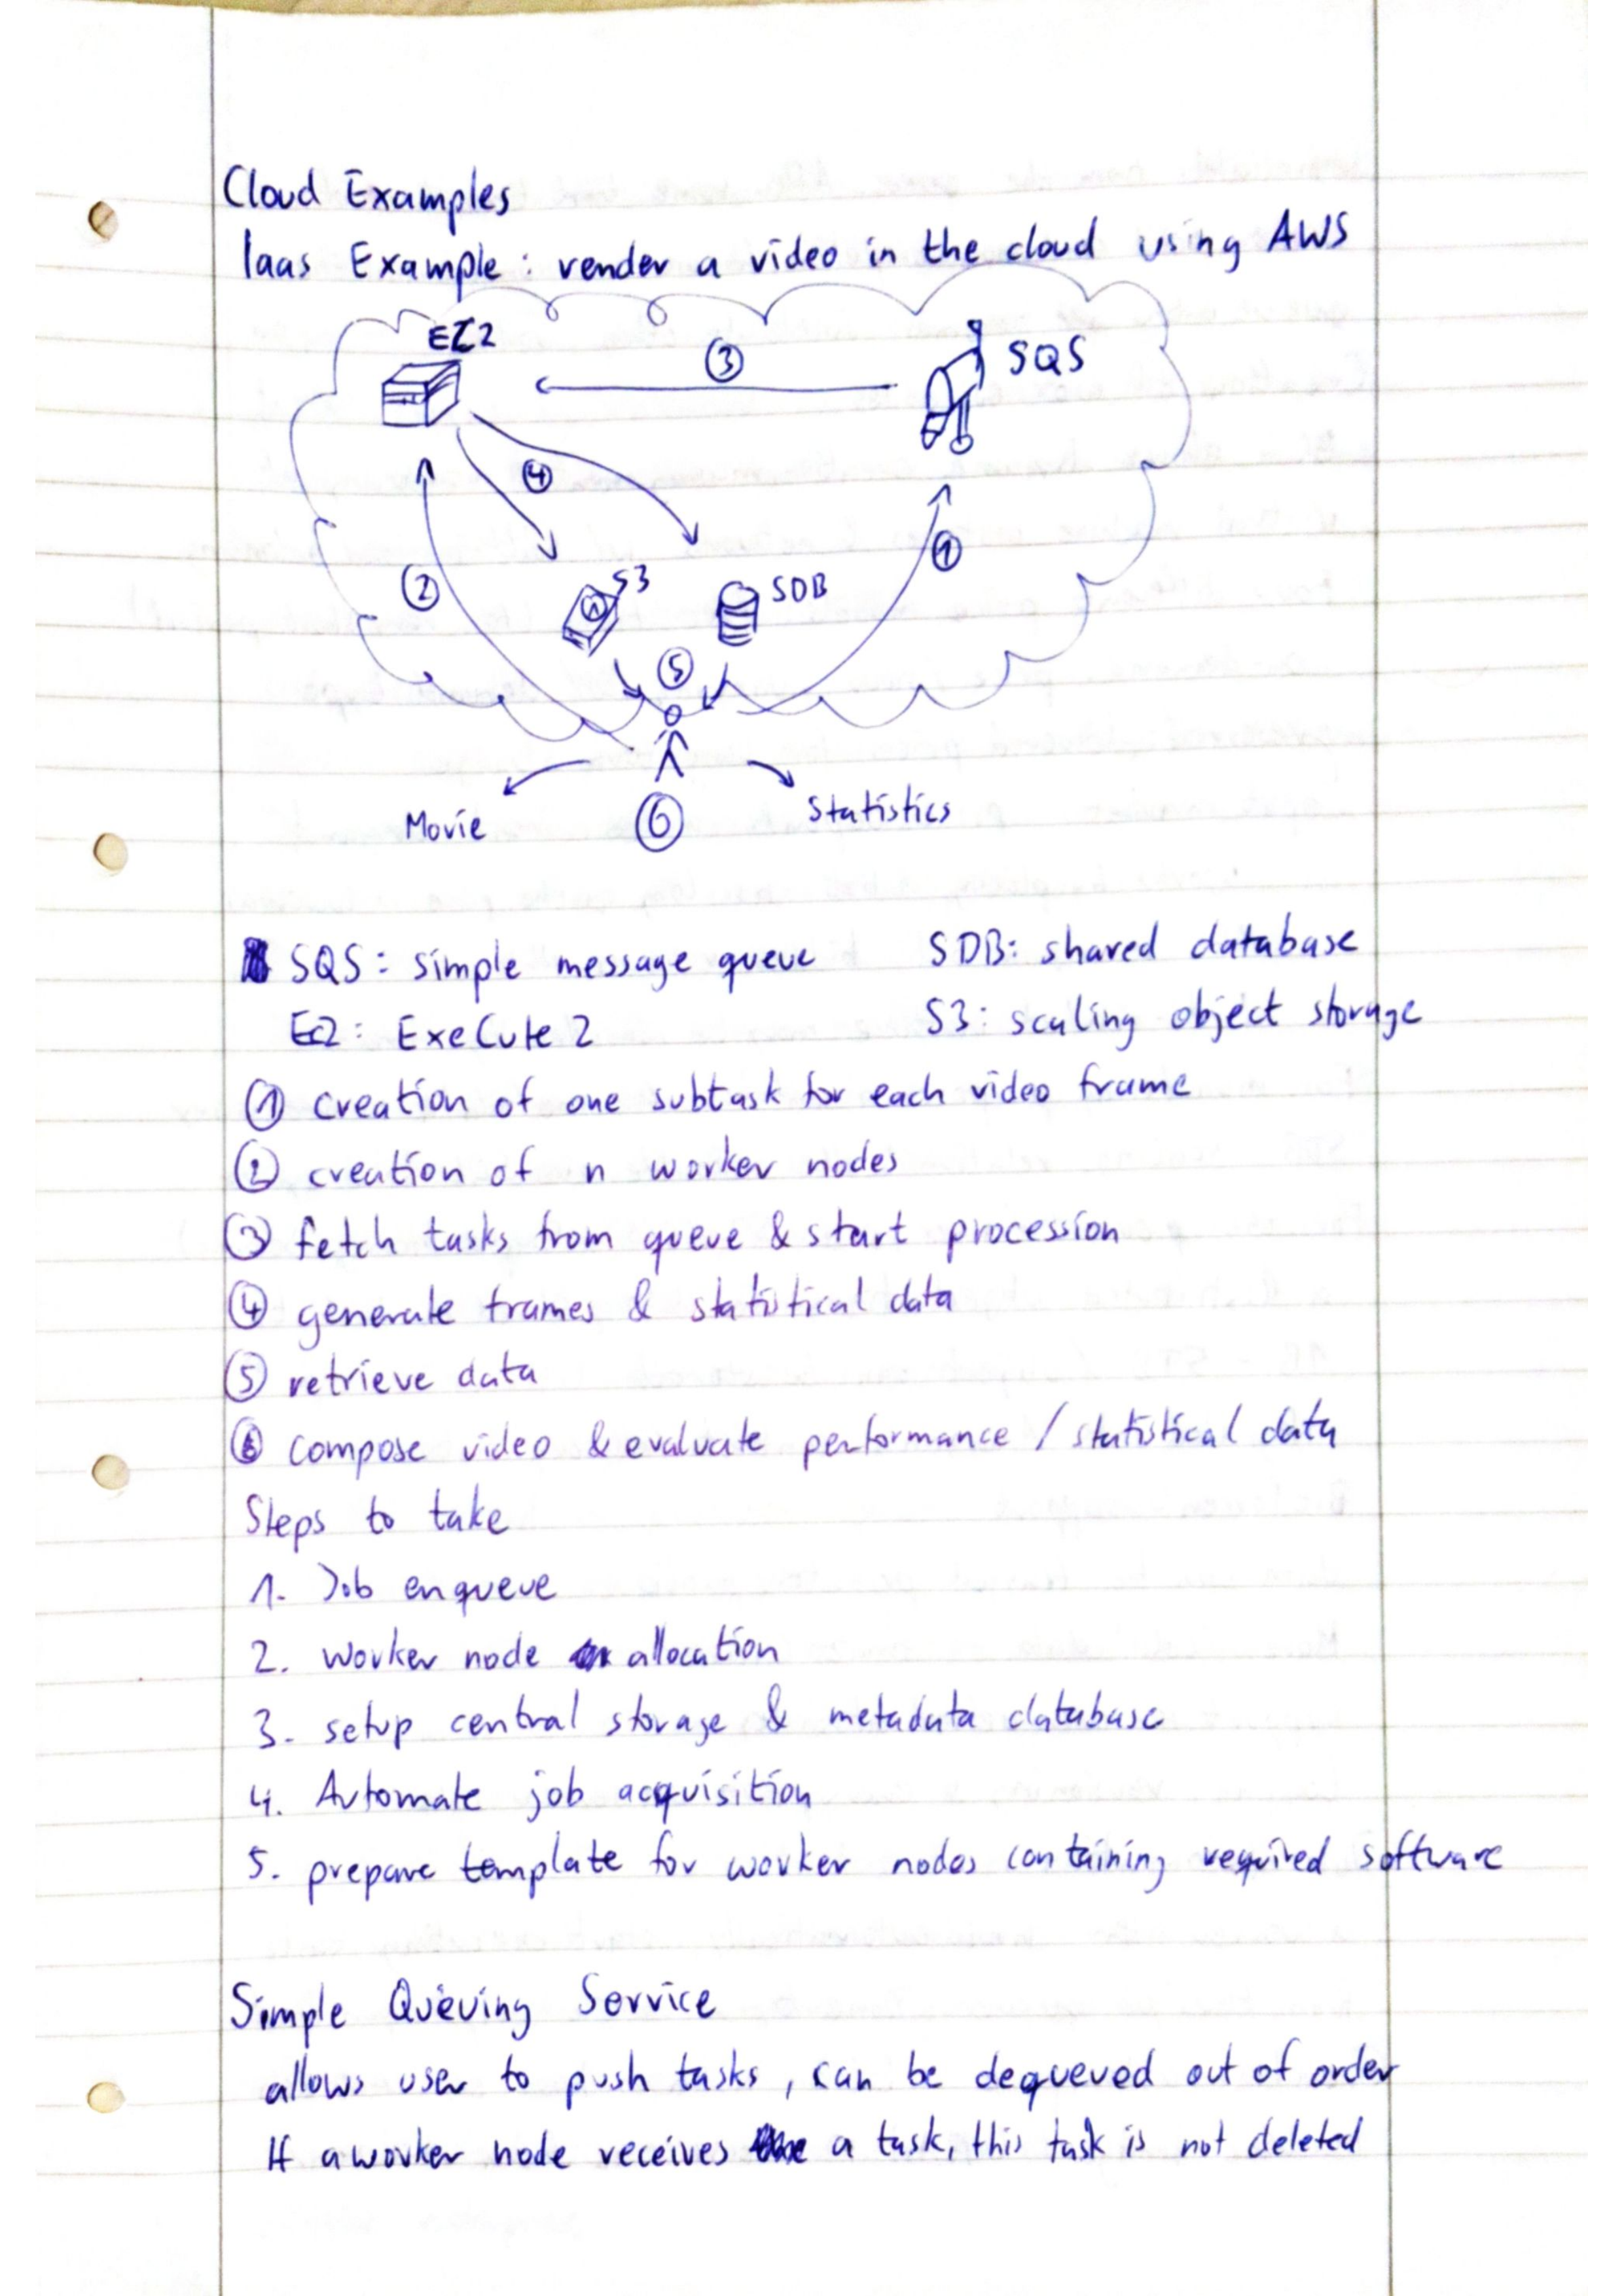 Cloud Examples
Iaas Example: render a video in the cloud using AWS
EC2
3
SQS
4
1
2
S3
SDB
5
Movie
6
Statistics
SQS: simple message queue
SDB: shared database
EC2: ExeCute 2
S3: scaling object storage
1 creation of one subtask for each video frame
2 creation of n worker nodes
3 fetch tasks from queue & start procession
4 generate frames & statistical data
5 retrieve data
6 compose video & evaluate performance / statistical data
Steps to take
1. Job enqueue
2. worker node allocation
3. setup central storage & metadata database
4. Automate job acquisition
5. prepare template for worker nodes containing required software
Simple Queuing Service
allows user to push tasks, can be dequeued out of order
If a worker node receives a task, this task is not deleted